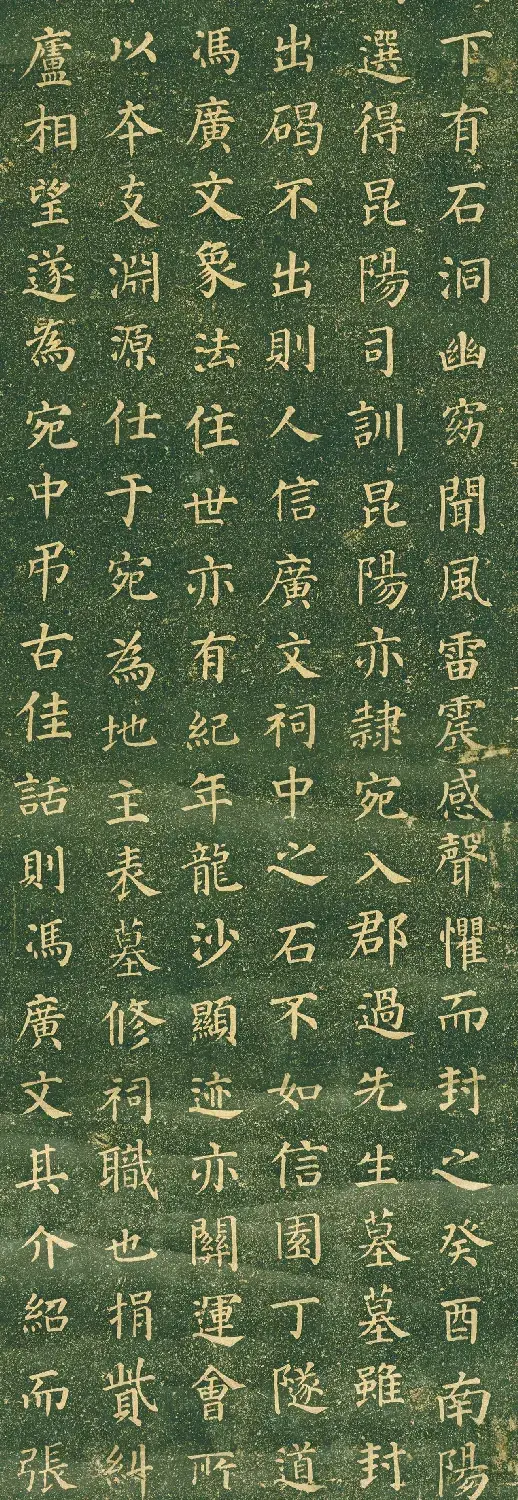 下有石洞幽窈聞風雷震感聲懼而封之癸酉南陽
選得昆陽司訓昆陽亦隷宛入郡過先生墓墓雖封
出碣不出則人信廣文祠中之石不如信園丁隧道
馮廣文象法住世亦有紀年龍沙顯迹亦關運會所
以夲支淵源仕于宛為地主表墓修祠職也捐貲糾
廬相望遂為宛中弔古佳話則馮廣文其介紹而張